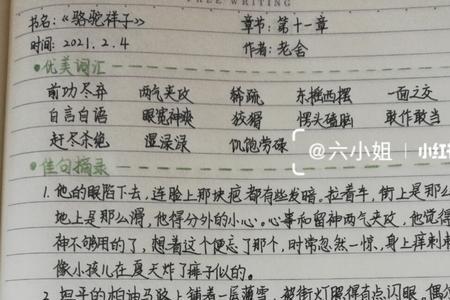 FREE WRITING
书名:《骆驼祥子》 章节:第十一章
时间:2021.2.4 作者:老舍
•优美词汇
前功尽弃 两气夹攻 稀疏 东摇西摆 一面之交
自言自语 眼宽神爽 狡猾 愣头磕脑 敢作敢当
赶尽杀绝 湿渌渌 饥饱劳碌
@六小姐 小红
•佳句摘录
1.他的眼陷下去,连脸上那块疤都有些发暗。拉着车,街上是那么
地上是那么滑,他得分外的小心。心事和留神两气夹攻,他觉得
神不够用的了,想着这个便忘了那个,时常忽然一惊,身上痒刺刺
像小孩儿在夏天炸了痱子似的。
2.坦平的柏油马路上铺着一层薄雪,被街灯照得有点闪眼,偶